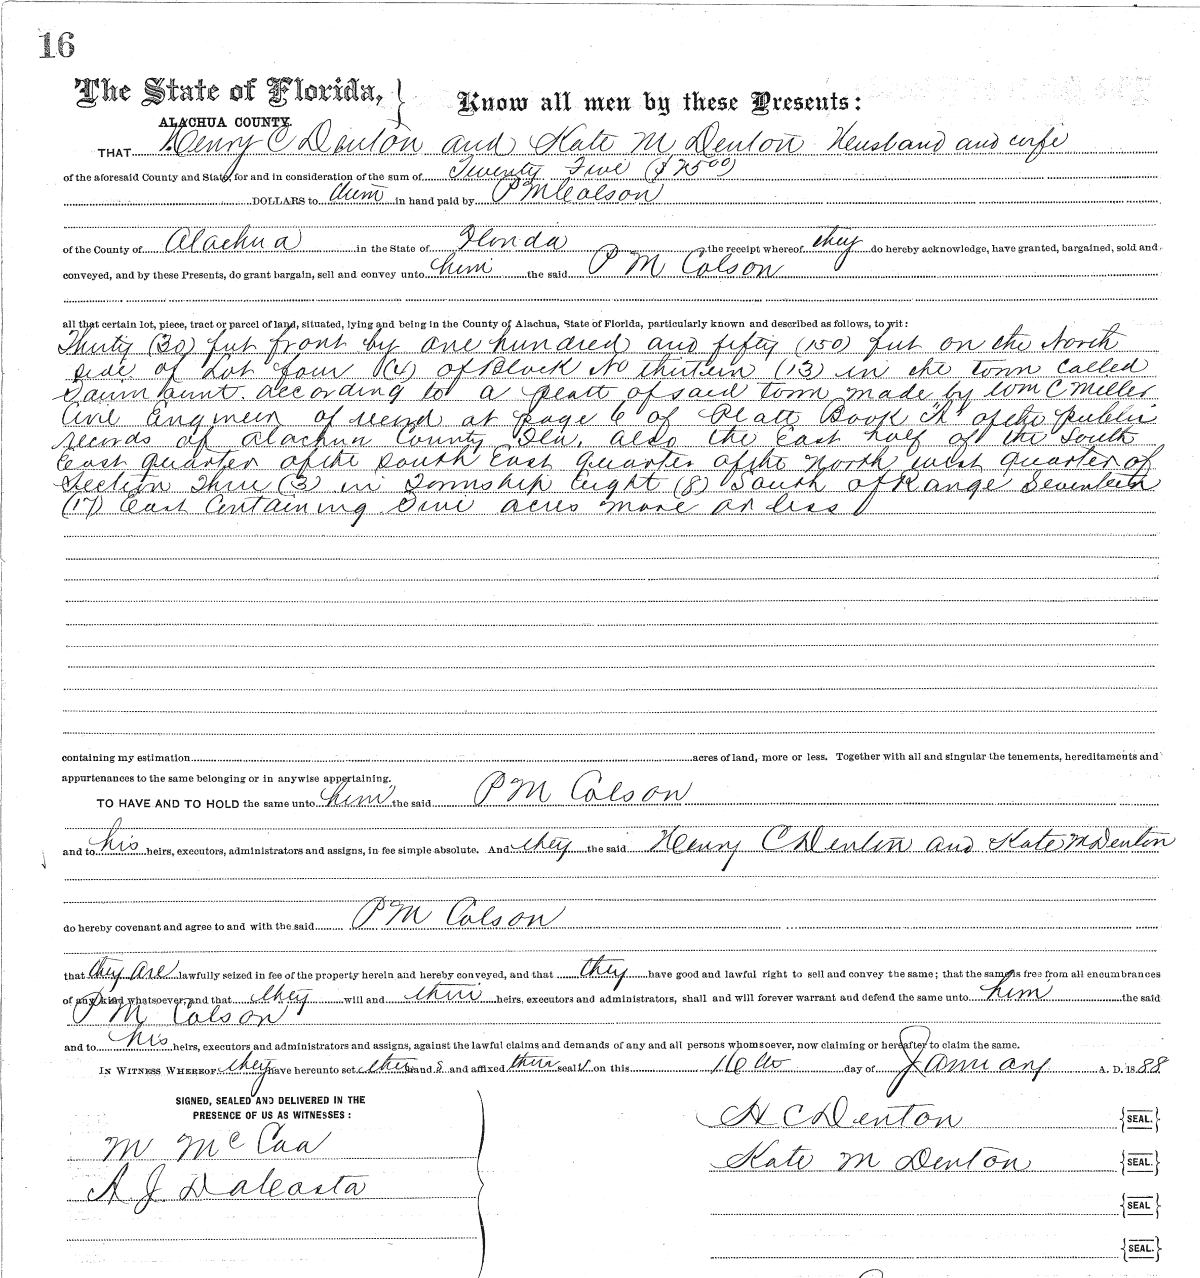 16
The State of Florida,
ALACHUA COUNTY.
Know all men by these Presents:
THAT Henry C Denton and Kate M Denton Husband and wife
of the aforesaid County and State, for and in consideration of the sum of Twenty Five ($25 00)
DOLLARS to them in hand paid by P M Colson
of the County of Alachua in the State of Florida the receipt whereof they do hereby acknowledge, have granted, bargained, sold and
conveyed, and by these Presents, do grant bargain, sell and convey unto him the said P M Colson
all that certain lot, piece, tract or parcel of land, situated, lying and being in the County of Alachua, State of Florida, particularly known and described as follows, to wit:
Thirty (30) feet front by one hundred and fifty (150) feet on the North
side of Lot four (4) of Block No thirteen (13) in the town called
according to a platt of said town made by Wm C Miller
Civil Engineer of record at page 6 of Platt Book "A" of the public
records of Alachua County Fla. also the East half of the South
East quarter of the South East quarter of the North west quarter of
Section Three (3) in Township Eight (8) South of Range Seventeen
(17) East Containing Five acres more or less
containing my estimation acres of land, more or less. Together with all and singular the tenements, hereditaments and
appurtenances to the same belonging or in anywise appertaining.
TO HAVE AND TO HOLD the same unto him the said P M Colson
and to his heirs, executors, administrators and assigns, in fee simple absolute. And they the said Henry C Denton and Kate M Denton
do hereby covenant and agree to and with the said P M Colson
that they are lawfully seized in fee of the property herein and hereby conveyed, and that they have good and lawful right to sell and convey the same; that the same is free from all encumbrances
of any kind whatsoever, and that they will and their heirs, executors and administrators, shall and will forever warrant and defend the same unto him the said
P M Colson
and to his heirs, executors and administrators and assigns, against the lawful claims and demands of any and all persons whomsoever, now claiming or hereafter to claim the same.
IN WITNESS WHEREOF, they have hereunto set their hand s and affixed their seal s on this 16 day of January A. D. 1888
SIGNED, SEALED AND DELIVERED IN THE
PRESENCE OF US AS WITNESSES:
M McCaa
A. J. DaCosta
H C Denton SEAL.
Kate M Denton SEAL.
SEAL
SEAL.